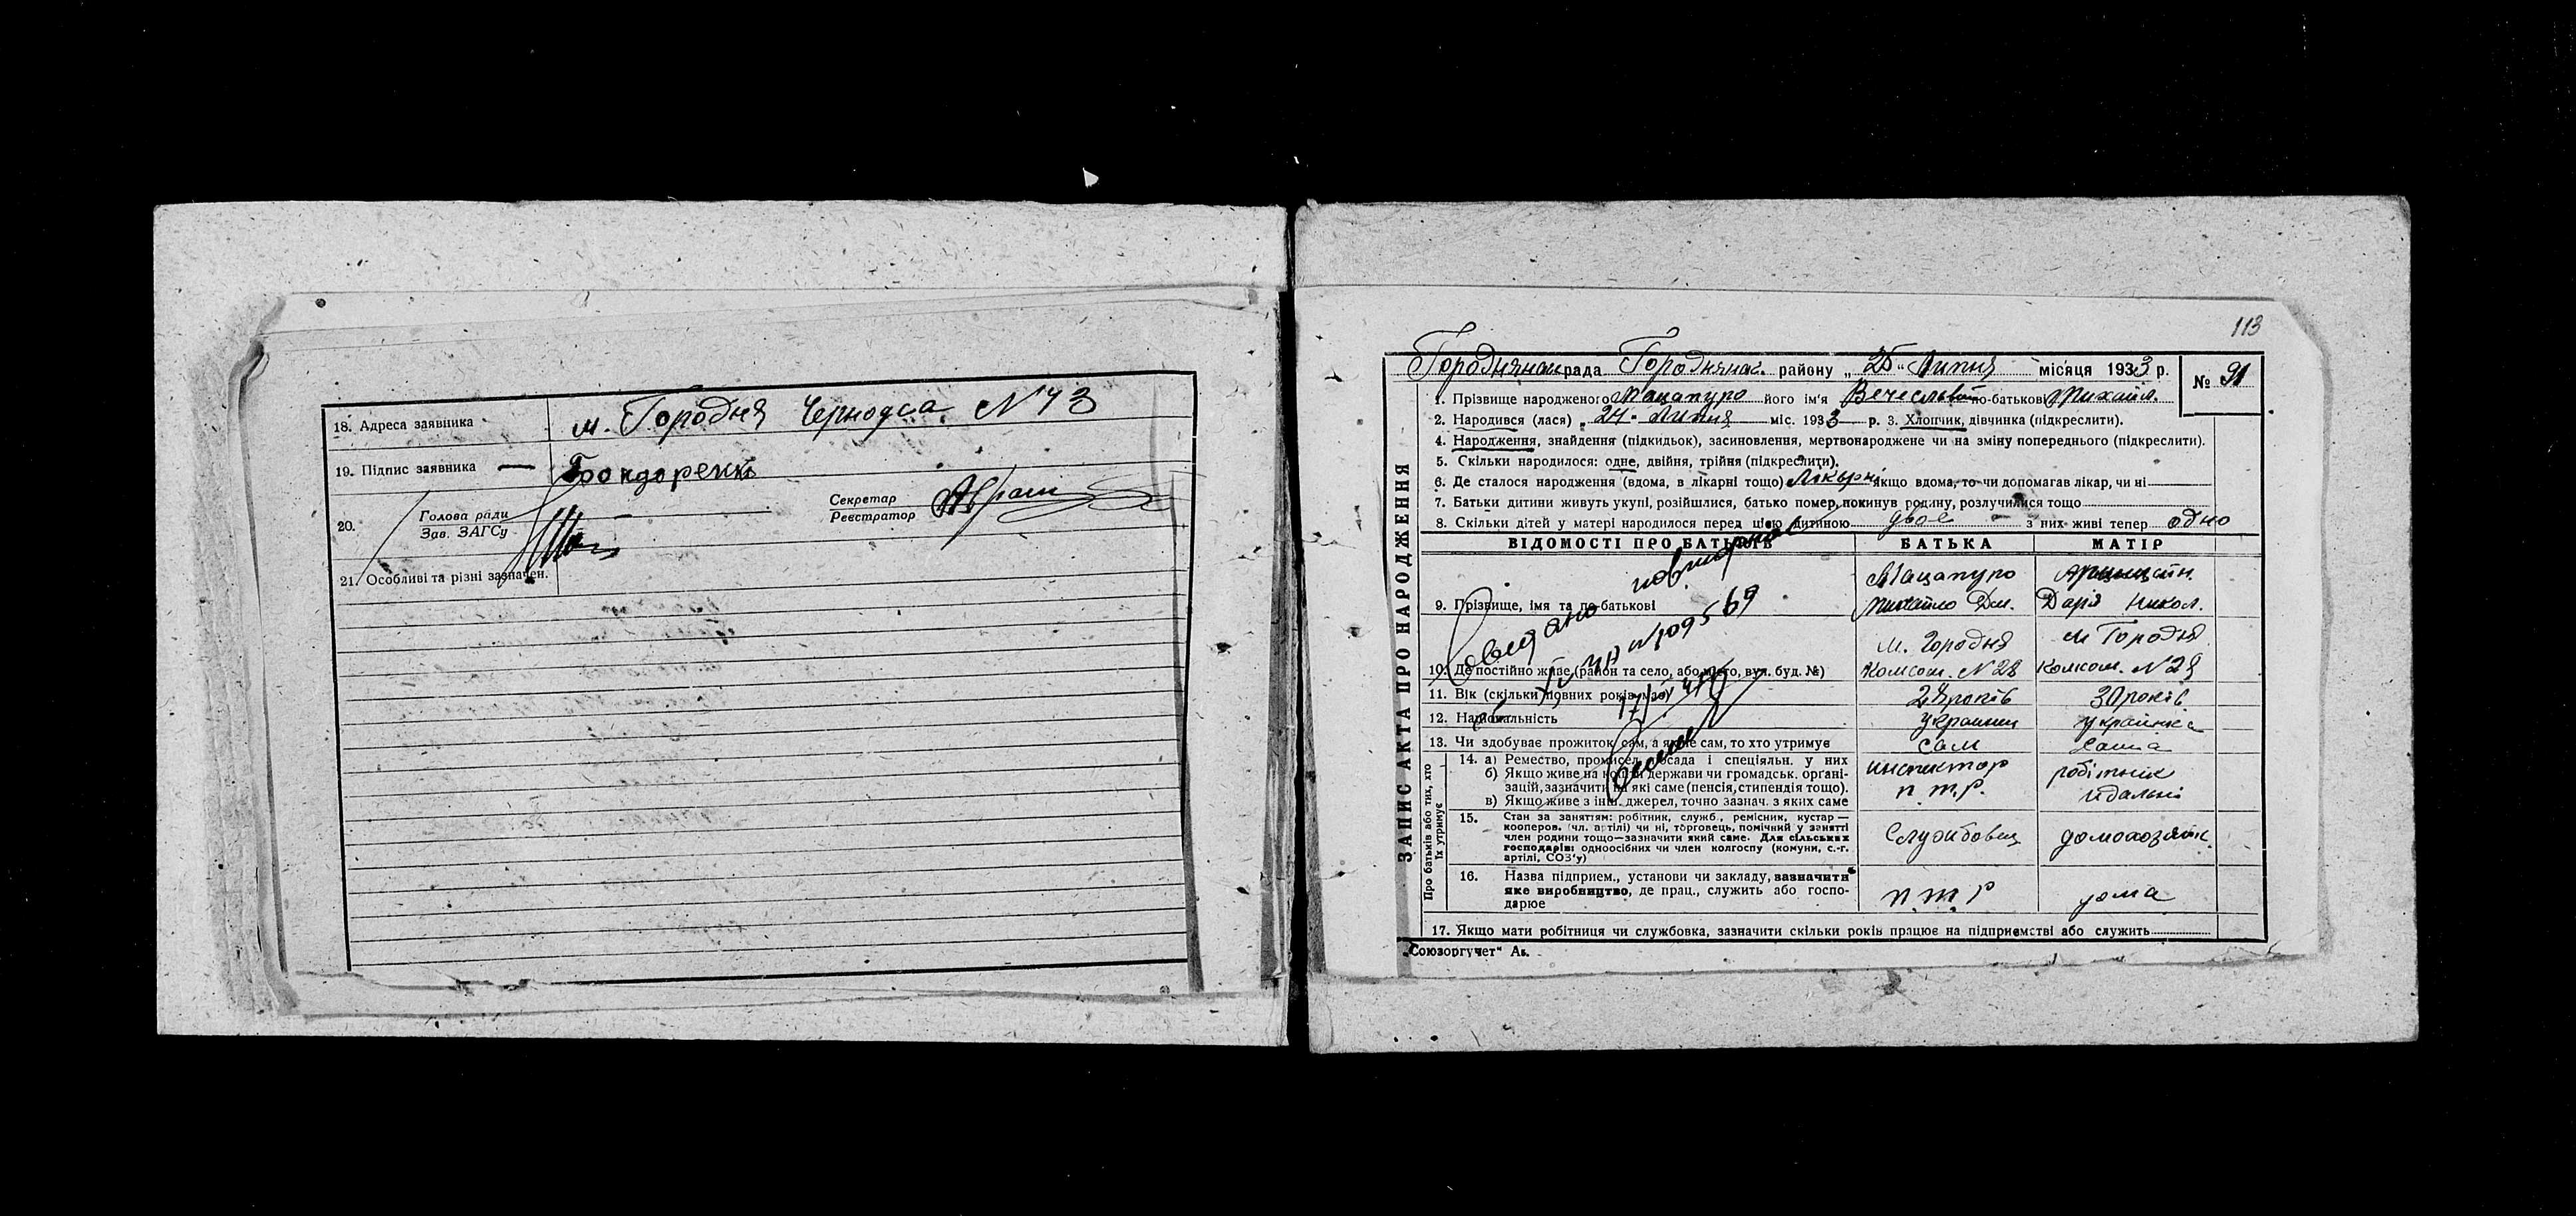 18. Адреса заявника м. Городня Черноуса N 43
19. Підпис заявника — Бондоренко
20. Голова ради
Зав. ЗАГСу
Секретар
Реєстратор
21. Особливі та різні зазначен.
113
рада району „25" Липня місяця 1933 р. № 91
1. Прізвище народженого Мацапуро його ім'я Вечеслав по-батькові Михайл.
2. Народився (лася) „24" Липня міс. 1933 р. 3. Хлопчик, дівчинка (підкреслити).
4. Народження, знайдення (підкидьок), засиновлення, мертвонароджене чи на зміну попереднього (підкреслити).
5. Скільки народилося: одне, двійня, трійня (підкреслити).
6. Де сталося народження (вдома, в лікарні тощо) якщо вдома, то чи допомагав лікар, чи ні
7. Батьки дитини живуть укупі, розійшлися, батько помер, покинув родину, розлучилися тощо
8. Скільки дітей у матері народилося перед цією дитиною двоє з них живі тепер одно
ЗАПИС АКТА ПРО НАРОДЖЕННЯ
ВІДОМОСТІ ПРО БАТЬКІВ БАТЬКА МАТІР
Мацапуро
9. Прізвище, імя та по-батькові Михайло Дм. Дарія Никол.
м. Городня м Городня
10. Де постійно живе (район та село, або місто, вул. буд. №) Комсом. N 28 Комсом. N 28
11. Вік (скільки повних років має) 28 років 30 років
12. Національність украинец українка
13. Чи здобуває прожиток сам, а як не сам, то хто утримує сам сама
Про батьків або тих, хто
їх утримує
14. а) Ремество, промисел, посада і спеціяльн. у них инспектор робітник
б) Якщо живе на кошти держави чи громадськ. органі-
зацій, зазначити на які саме (пенсія, стипендія тощо). п.т.р. їдальні
в) Якщо живе з інш. джерел, точно зазнач. з яких саме
15. Стан за заняттям: робітник, служб., ремісник, кустар —
кооперов. (чл. артілі) чи ні, торговець, помічний у занятті
член родини тощо—зазначити який саме. Для сільських
господарів: одноосібних чи член колгоспу (комуни, с.-г.
артілі, СОЗ'у)
Службовец домохозяйк.
16. Назва підприєм., установи чи закладу, зазначити
яке виробництво, де прац., служить або госпо-
дарює
п.т.р дома
17. Якщо мати робітниця чи службовка, зазначити скільки років працює на підприємстві або служить
„Союзоргучет"